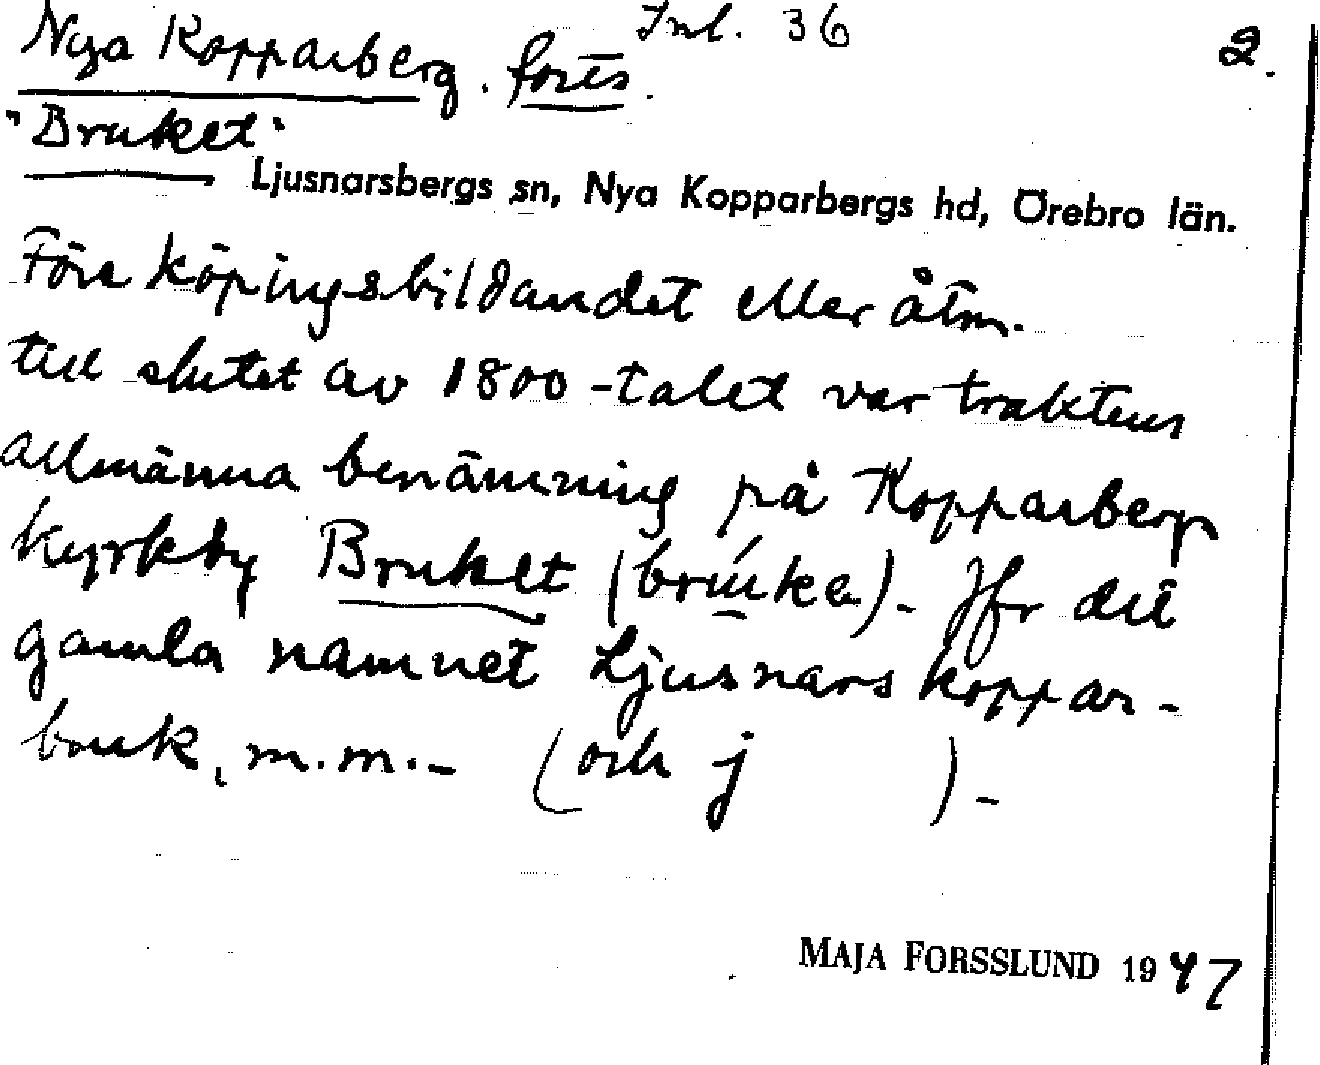 Nya Kopparberg. forts. Inl. 36 2.
"Bruket"
Ljusnarsbergs sn, Nya Kopparbergs hd, Örebro län.
Före köpingsbildandet eller åtm.
till slutet av 1800-talet var traktens
allmänna benämning på Kopparbergs
kyrkby Bruket (brúka). Jfr det
gamla namnet Ljusnars koppar-
bruk, m.m.- (och j )-
MAJA FORSSLUND 1947